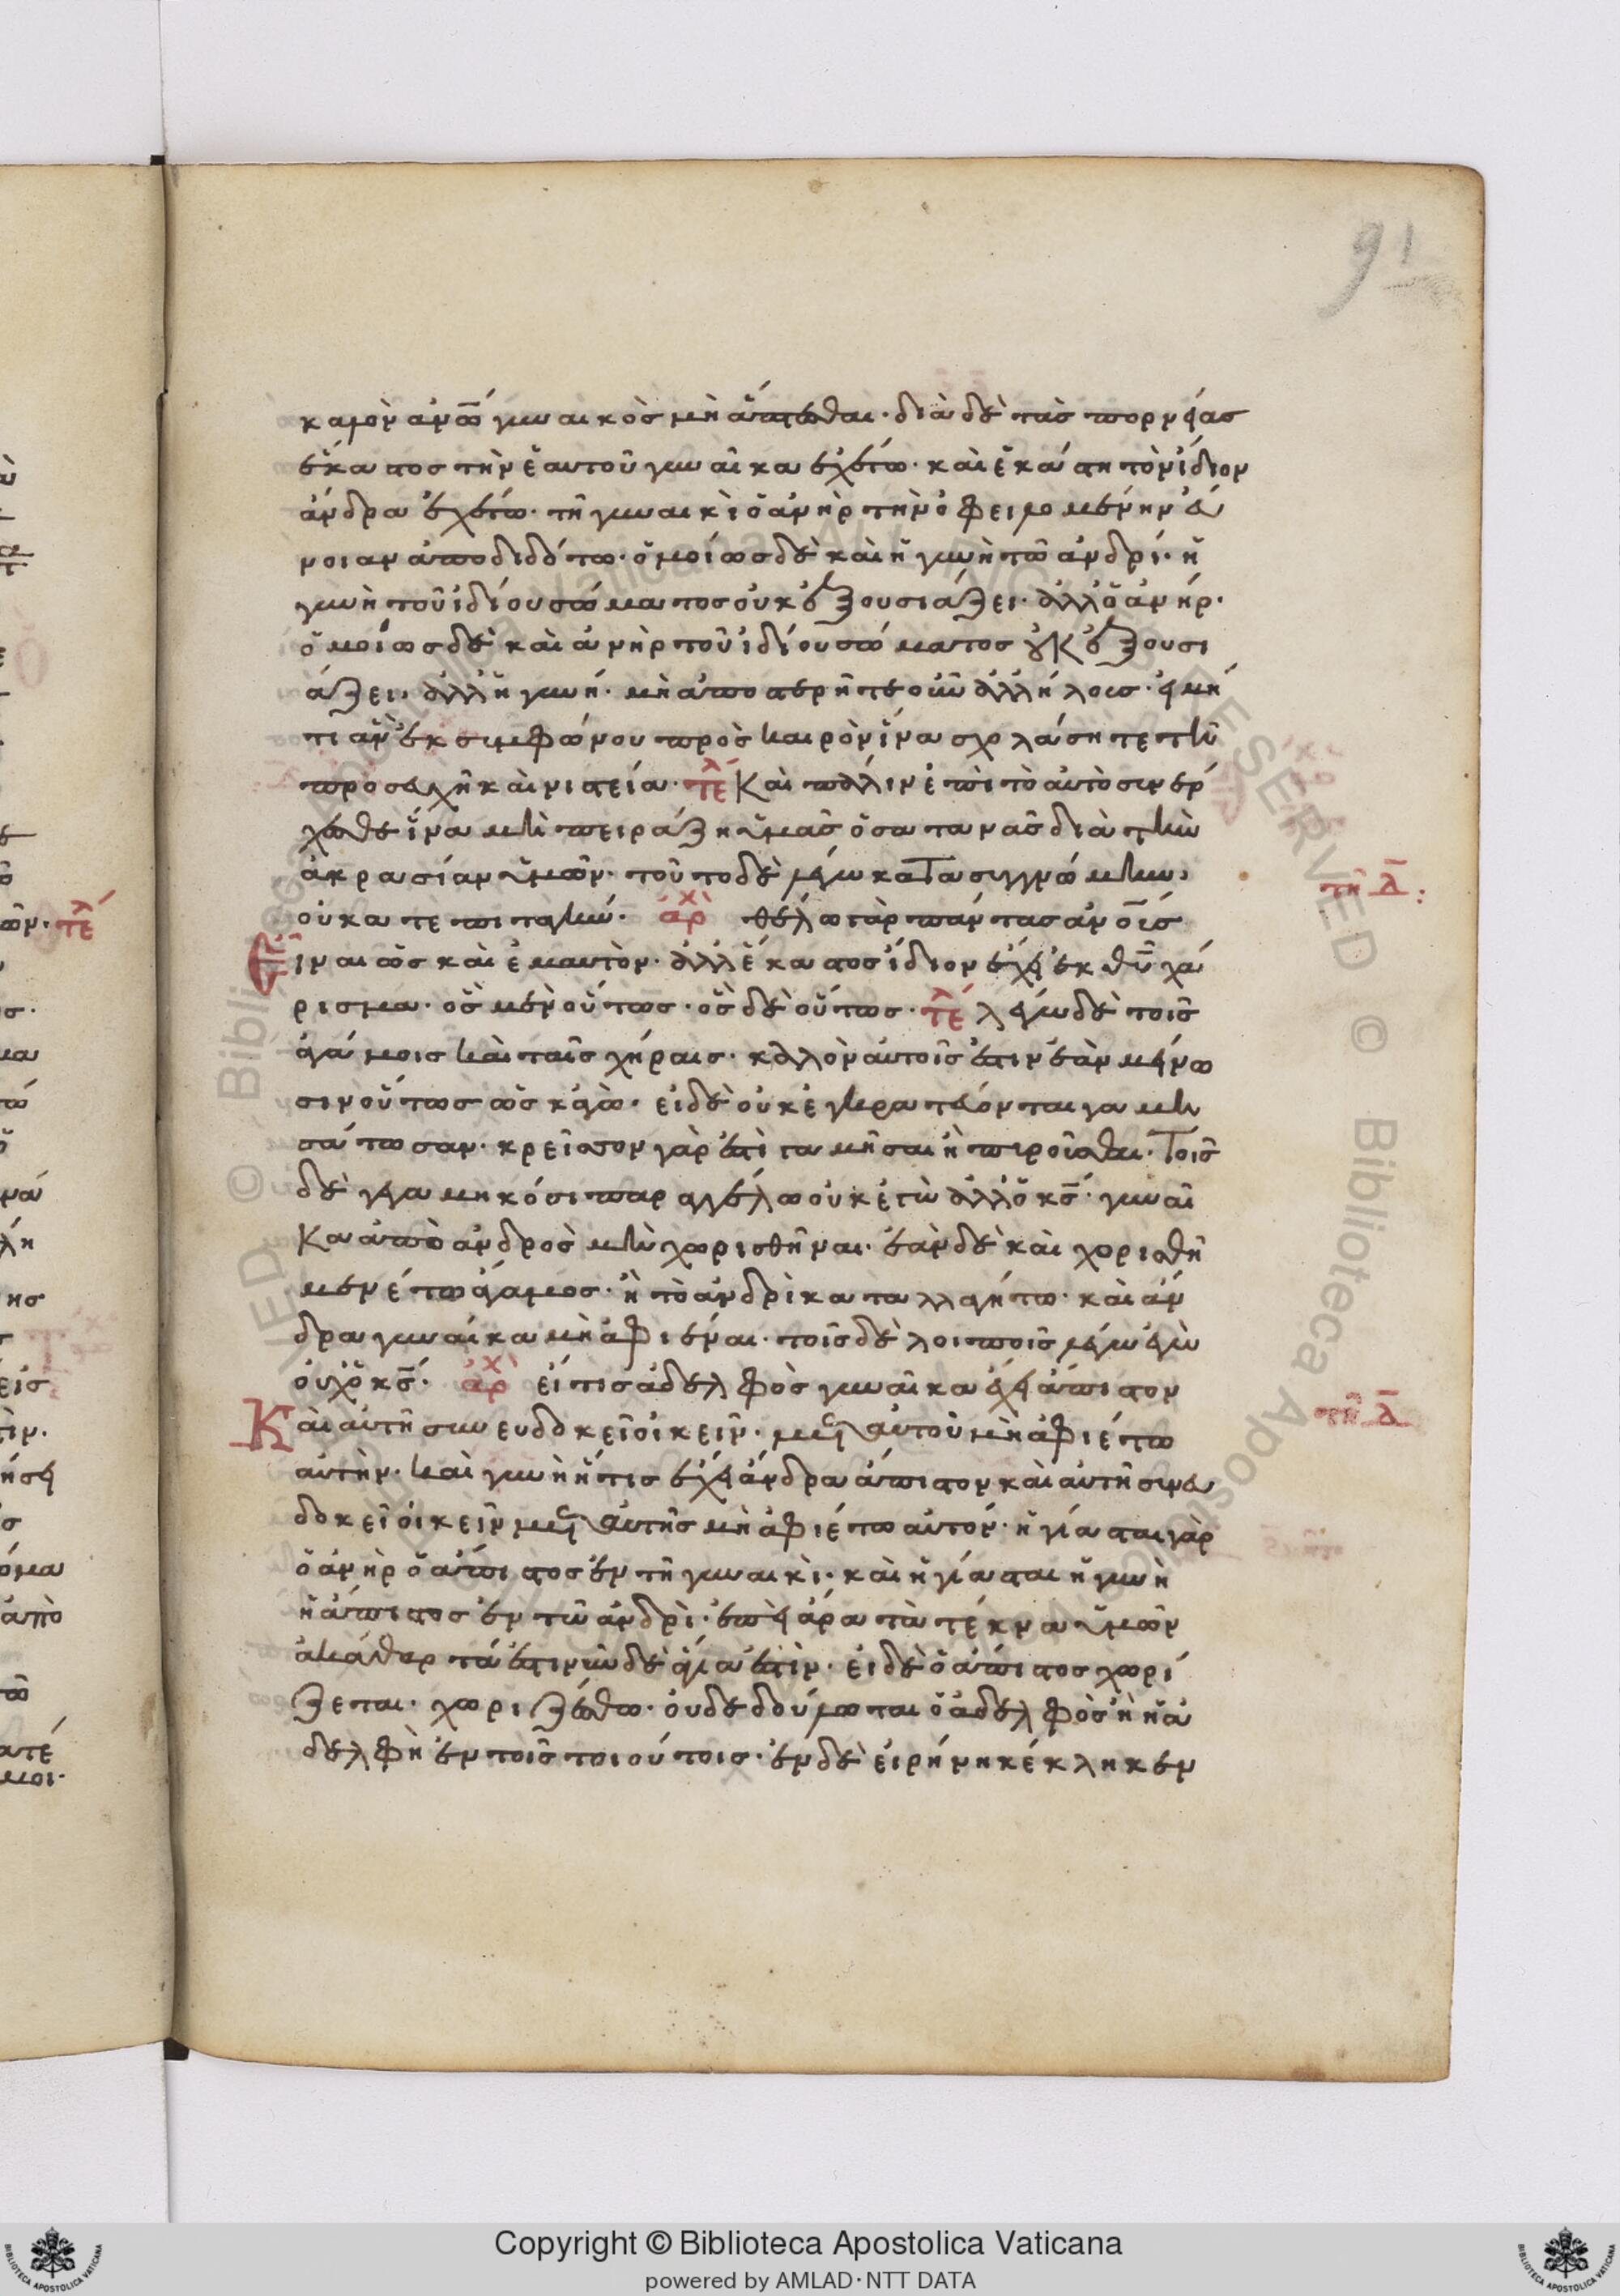 91
καλὸν ἀνω̅ γυναικὸς μὴ ἅπτεσθαι· διὰ δὲ τὰς πορνείας
ἕκαστος τὴν ἑαυτοῦ γυναῖκα ἐχέτω· καὶ ἑκάστη τὸν ἴδιον
ἄνδρα ἐχέτω· τῆ γυναικὶ ὁ ἀνὴρ τὴν ὀφειλομένην εὔ
νοιαν ἀποδιδότω· ὁμοίως δὲ καὶ ἡ γυνὴ τῶ ἀνδρί· ἡ
γυνὴ τοῦ ἰδίου σώματος οὐκ ἐξουσιάζει· ἀλλ ὁ ἀνήρ·
ὁμοίως δὲ καὶ ἀνὴρ τοῦ ἰδίου σώματος οὐκ ἐξουσι
άζει· ἀλλ ἡ γυνή· μὴ ἀποστερῆτε οὖν ἀλλήλοις· εἰ μή
τι ἂν ἐκ συμφώνου πρὸς καιρὸν ἵνα σχολάσητε τῆ
προσευχῆ καὶ νιστεία· τελ Καὶ πάλιν ἐπὶ τὸ αὐτὸ συνέρ
χεσθε ἵνα μὴ πειράζη ὑμᾶς ὁ σατανᾶς διὰ τὴν
ἀκρασίαν ὑμῶν· τοῦτο δὲ λέγω κατασυγγνώμην·
τῆ δ̅:
οὐκατεπιταγήν· ἀρχ θέλω γὰρ πάντας ἀνο̅ις
Εἶναι ὡς καὶ ἐμαυτὸν· ἀλλ ἕκαστος ἴδιον ἔχει ἐκ θυ̅ χά
ρισμα· ὃς μὲν οὕτως· ὃς δὲ οὕτως· τελ λέγω δὲ τοῖς
ἀγάμοις καὶ ταῖς χήραις· καλλὸν αὐτοῖς ἐστιν ἐὰν μείνω
σιν οὕτως ὡς κἀγὼ· εἰ δὲ οὐκ ἐγκρατεύονται γαμη
σάτωσαν· κρεῖσσον γὰρ ἐστὶ γαμῆσαι ἢ πυροῦσθαι· Τοῖς
δὲ γεγαμηκόσι παραγγέλω οὐκ ἐγὼ ἀλλ ὁ κς̅· γυναῖ
Κα ἀπὸ ἀνδρὸς μὴ χωρισθῆναι· ἐὰν δὲ καὶ χορισθῆ
μενέτω ἄγαμος· ἢ τὸ ἀνδρὶ καταλλαγήτω· καὶ ἄν
δρα γυναίκα μὴ ἀφιέναι· τοῖς δὲ λοιποῖς λέγω ἐγὼ
οὐχ ὁ κς̅· ἀρχ εἴ τις ἀδελφὸς γυναῖκα ἔχει ἄπιστον
τῆ δ̅
Καὶ αὐτὴ συνευδοκεῖ οἰκεῖν· μετ αὐτοῦ μὴ ἀφιέτω
αὐτὴν· καὶ γυνὴ ἥτις ἔχει ἄνδρα ἄπιστον καὶ αὐτὴ συνευ
δοκεῖ οἰκεῖν μετ αὐτῆς μὴ ἀφιέτω αὐτόν· ἡγίασται γὰρ
ὁ ἀνὴρ ὁ ἄπιστος ἐν τῆ γυναικὶ· καὶ ἡγίασται ἡ γυνὴ
ἡ ἄπιστος ἐν τῶ ἀνδρὶ· ἐπεὶ ἄρα τὰ τέκνα ὑμῶν
ἀκάθαρτά ἐστιν νῦν δὲ ἅγια ἐστὶν· εἰ δὲ ὁ ἄπιστος χωρί
ζεται· χωριζέσθω· οὐ δεδούλωται ὁ ἀδελφὸς ἢ ἡ ἀ
δελφὴ ἐν τοῖς τοιούτοις· ἐν δὲ εἰρήνη κέκληκεν
Copyright © Biblioteca Apostolica Vaticana
powered by AMLAD·NTT DATA